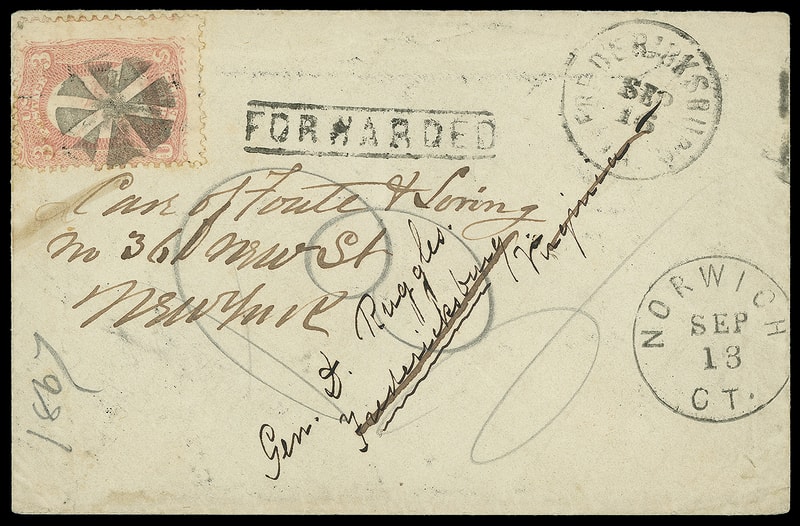 FORWARDED
FREDERICKSBURG
SEP
Care of Foute & Loring
New York
Gen. D. Ruggles.
Fredericksburg Virginia
NORWICH
SEP
13
CT.
1867
3
3